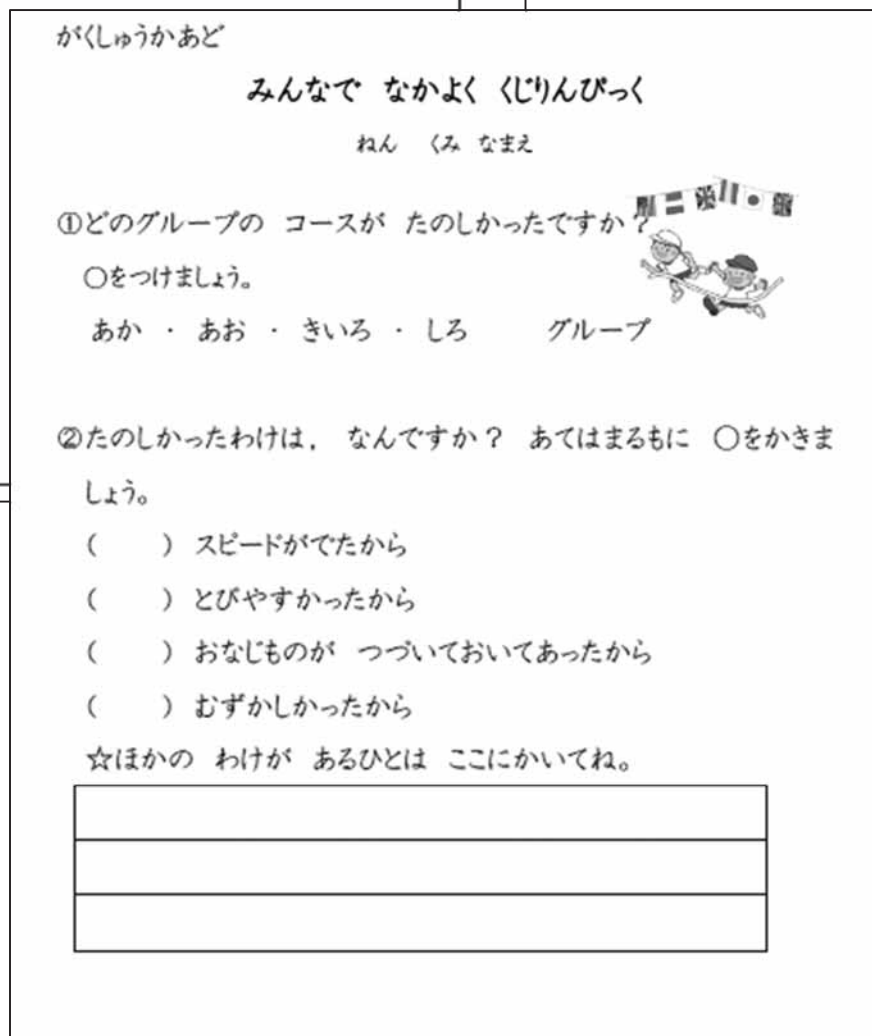 がくしゅうかあど
みんなで なかよく くじりんぴっく
ねん くみ なまえ
①どのグループの コースが たのしかったですか？
○をつけましょう。
あか ・ あお ・ きいろ ・ しろ グループ
②たのしかったわけは， なんですか？ あてはまるもに ○をかきま
しょう。
( ) スピードがでたから
( ) とびやすかったから
( ) おなじものが つづいておいてあったから
( ) むずかしかったから
☆ほかの わけが あるひとは ここにかいてね。